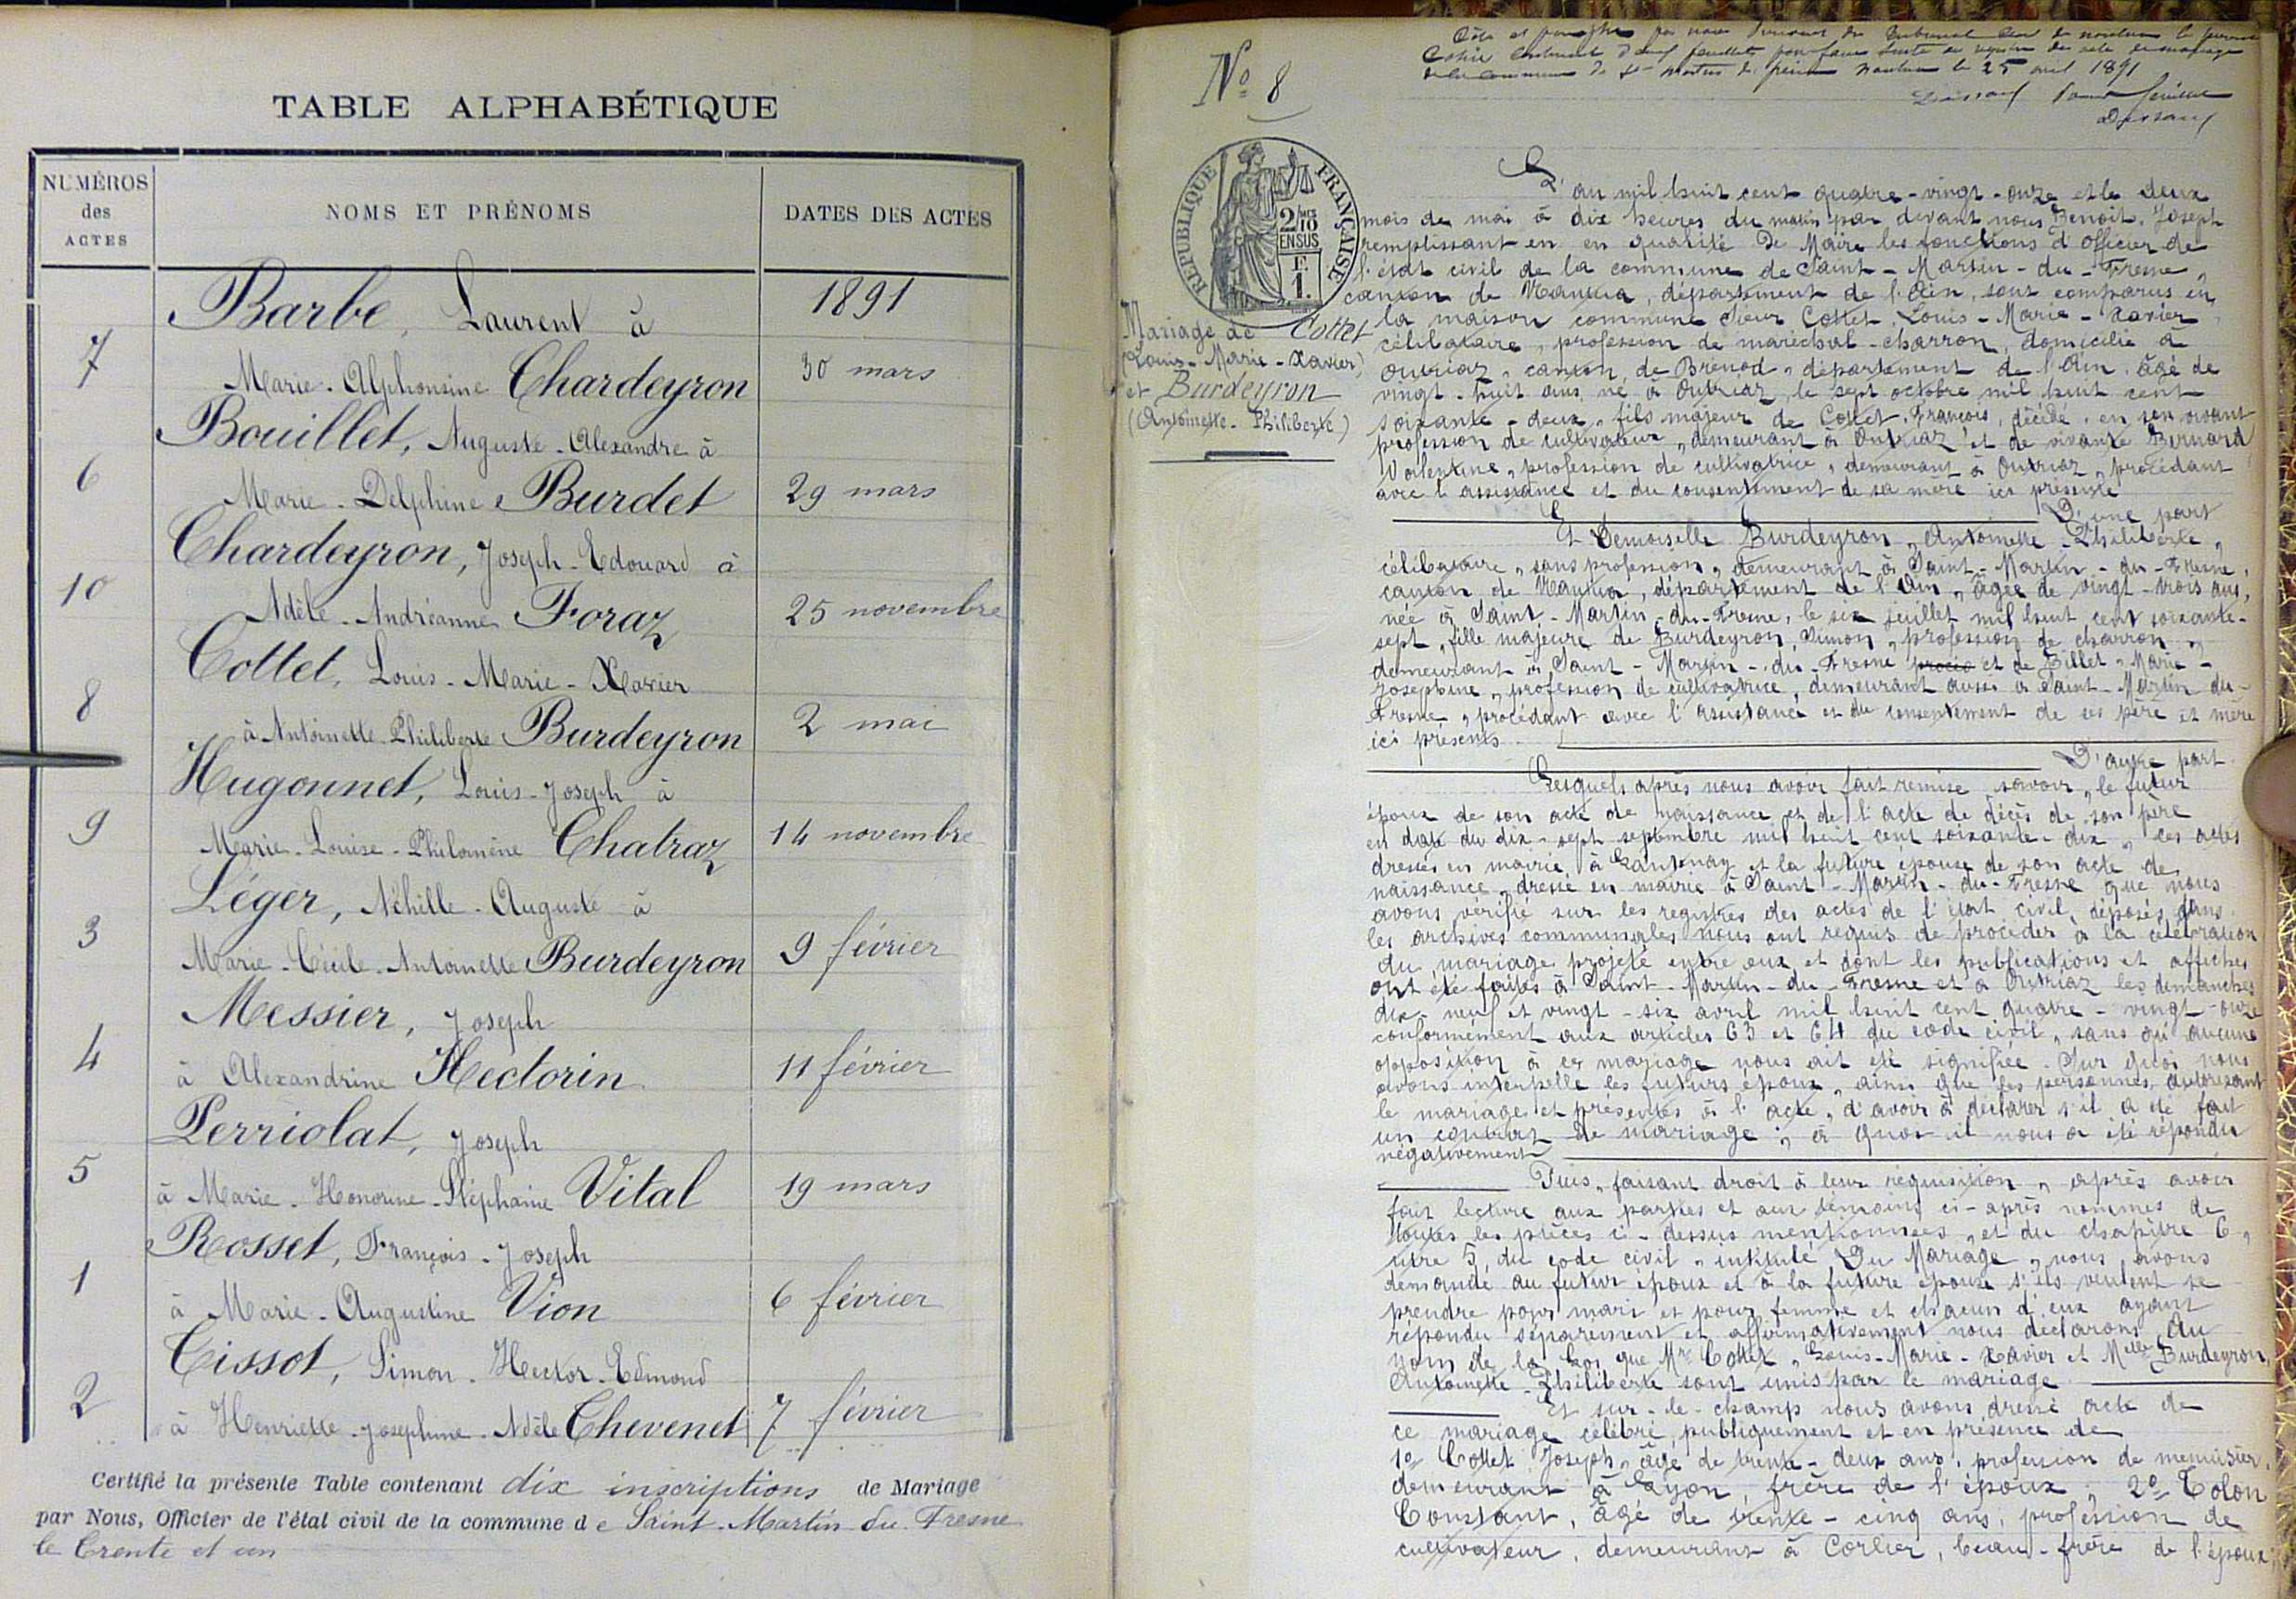 TABLE ALPHABÉTIQUE
NUMÉROS des ACTES
NOMS ET PRÉNOMS
DATES DES ACTES
Barbe, Laurent à 1891
7 Marie-Alphonsine Chardeyron 30 mars
Bouillet, Auguste-Alexandre à
6 Marie-Delphine Burdet 29 mars
Chardeyron, Joseph-Edouard à
10 Adèle-Andréanne Foraz 25 novembre
Cottet, Louis-Marie-Xavier
8 à Antoinette-Philiberte Burdeyron 2 mai
Hugonnet, Louis-Joseph à
9 Marie-Louise-Philomène Chatraz 14 novembre
Léger, Achille-Auguste à
3 Marie-Cécile-Antoinette Burdeyron 9 février
Messier, Joseph
4 à Alexandrine Hectorin 11 février
Perriolat, Joseph
5 à Marie-Honorine-Stéphanie Vital 19 mars
Rosset, François-Joseph
1 à Marie-Augustine Vion 6 février
Tissot, Simon-Hector-Edmond
2 à Henriette-Joséphine-Adèle Chevenet 7 février
Certifié la présente Table contenant dix inscriptions de Mariage
par Nous, Officier de l'état civil de la commune de Saint-Martin-du-Fresne
le trente et un
Nº 8
feuillets pour faire suite au registre des actes de mariage
de la commune de St-Martin du 25 avril 1891
RÉPUBLIQUE FRANÇAISE
2/10 EN SUS
F. 1.
Mariage de Cottet
(Louis-Marie-Xavier)
et Burdeyron
(Antoinette-Philiberte)
L'an mil huit cent quatre-vingt-onze et le deux
mois de mai à dix heures du matin par devant nous Benoit, Joseph
remplissant en en qualité de Maire les fonctions d'officier de
l'état civil de la commune de Saint-Martin-du-Fresne,
canton de Nantua, département de l'Ain, sont comparus en
la maison commune Sieur Cottet, Louis-Marie-Xavier
célibataire, profession de maréchal-charron, domicilié à
Outriaz, canton de Brénod, département de l'Ain, âgé de
vingt-huit ans, né à Outriaz, le sept octobre mil huit cent
soixante-deux, fils majeur de Cottet, François, décédé, en son vivant
profession de cultivateur, demeurant à Outriaz et de vivante Bernard
Valentine, profession de cultivatrice, demeurant à Outriaz, procédant
avec l'assistance et du consentement de sa mère ici présente
D'une part
Et Demoiselle Burdeyron, Antoinette-Philiberte,
célibataire, sans profession, demeurant à Saint-Martin-du-Fresne,
canton de Nantua, département de l'Ain, âgée de vingt-trois ans,
née à Saint-Martin-du-Fresne, le six juillet mil huit cent soixante-
sept, fille majeure de Burdeyron, Simon, profession de charron,
demeurant à Saint-Martin-du-Fresne procéd et de Tillet, Marie-
Joséphine, profession de cultivatrice, demeurant aussi à Saint-Martin du-
Fresne, procédant avec l'assistance et du consentement de ses père et mère
ici présents
D'autre part
Lesquels après nous avoir fait remise savoir, le futur
époux de son acte de naissance et de l'acte de décès de son père
en date du dix-sept septembre mil huit cent soixante-dix, ces actes
dressés en mairie à Lantenay et la future épouse de son acte de
naissance, dressé en mairie à Saint-Martin-du-Fresne que nous
avons vérifié sur les registres des actes de l'état civil, déposés dans
les archives communales nous ont requis de procéder à la célébration
du mariage projeté entre eux et dont les publications et affiches
ont été faites à Saint-Martin-du-Fresne et à Outriaz les dimanches
dix-neuf et vingt-six avril mil huit cent quatre-vingt-onze
conformément aux articles 63 et 64 du code civil, sans qu'aucune
opposition à ce mariage nous ait été signifiée. Sur quoi nous
avons interpellé les futurs époux, ainsi que les personnes autorisant
le mariage et présentes à l'acte, d'avoir à déclarer s'il a été fait
un contrat de mariage, à quoi il nous a été répondu
négativement
Puis, faisant droit à leur réquisition, après avoir
fait lecture aux parties et aux témoins ci-après nommés de
toutes les pièces ci-dessus mentionnées, et du chapitre 6,
titre 5, du code civil, intitulé Du Mariage, nous avons
demandé au futur époux et à la future épouse s'ils veulent se
prendre pour mari et pour femme et chacun d'eux ayant
répondu séparément et affirmativement nous déclarons Au
nom de la loi que Mr Cottet, Louis-Marie-Xavier et Melle Burdeyron,
Antoinette-Philiberte sont unis par le mariage
Et sur-le-champ nous avons dressé acte de
ce mariage célébré publiquement et en présence de
1º Cottet Joseph, âgé de trente-deux ans, profession de menuisier,
demeurant à Lyon, frère de l'époux, 2º Colon
Constant, âgé de trente-cinq ans, profession de
cultivateur, demeurant à Corlier, beau-frère de l'époux,